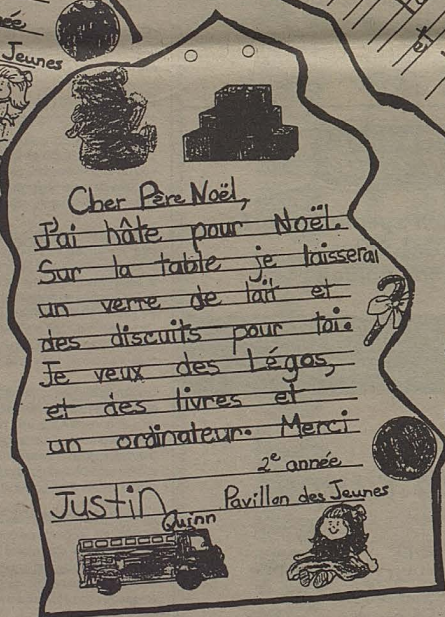 ée
Jeunes
et
Cher Père Noël,
J'ai hâte pour Noël.
Sur la table je laisserai
un verre de lait et
des discuits pour toi.
Je veux des Légos,
et des livres et
un ordinateur. Merci
2e année
Justin Quinn
Pavillon des Jeunes